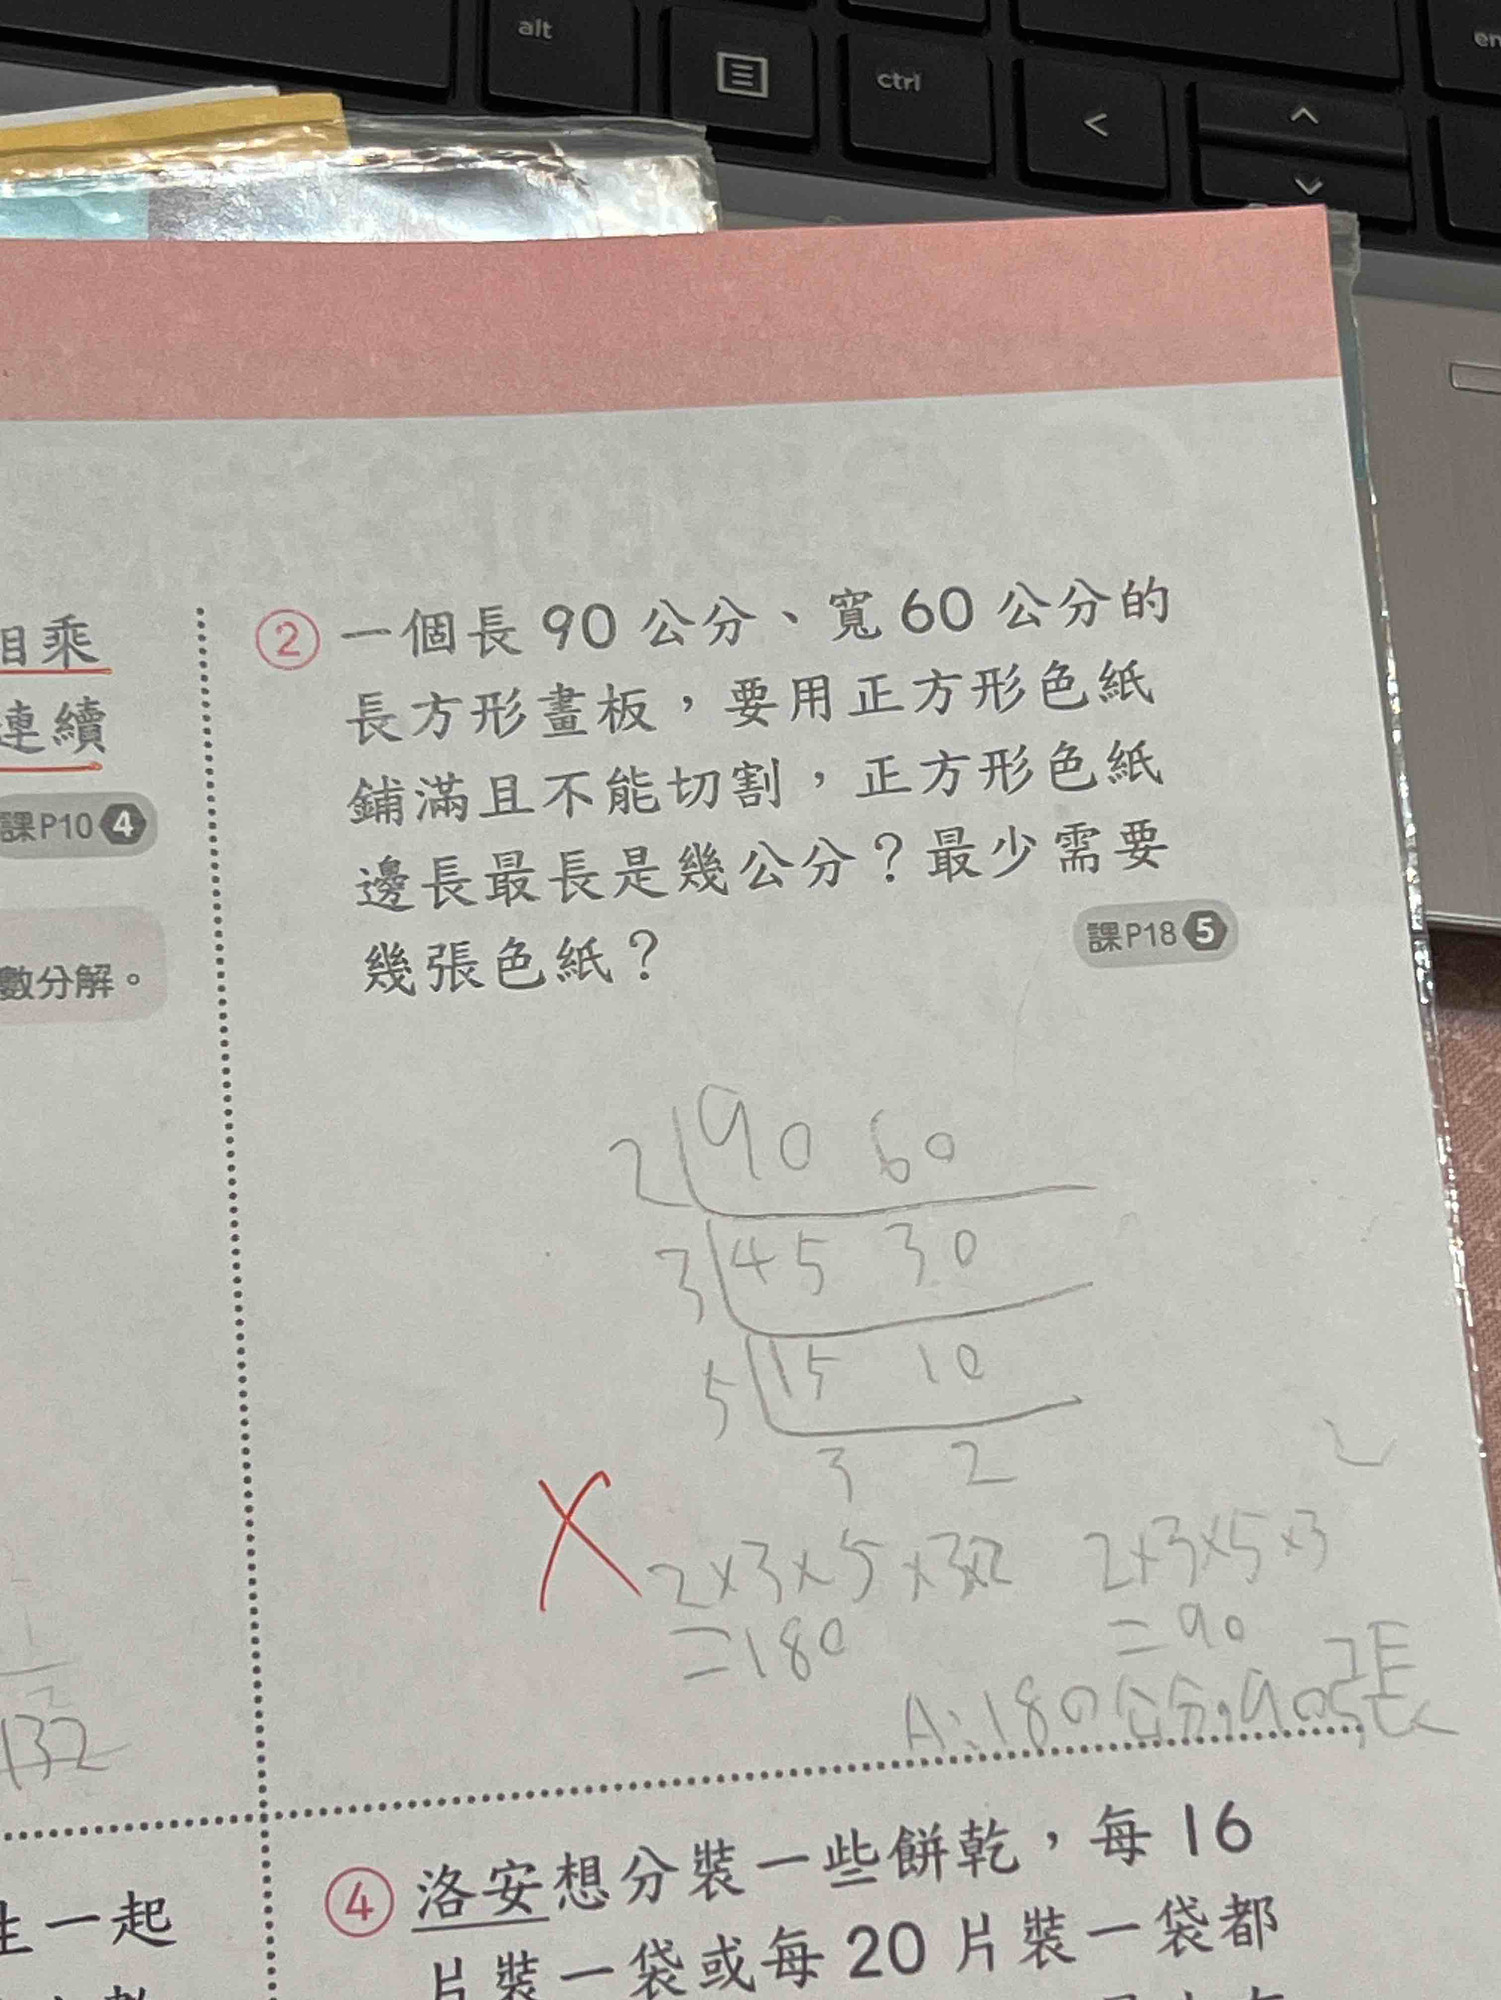 alt
ctrl
en
相乘
連續
課P10 4
數分解。
2 一個長 90 公分、寬 60 公分的
長方形畫板,要用正方形色紙
鋪滿且不能切割,正方形色紙
邊長最長是幾公分?最少需要
幾張色紙?
課P18 5
2 90 60
3 45 30
5 15 10
3 2
2×3×5×3×2
=180
2×3×5×3
=90
A:180公分,90張
132
生一起
4 洛安想分裝一些餅乾,每 16
片裝一袋或每 20 片裝一袋都